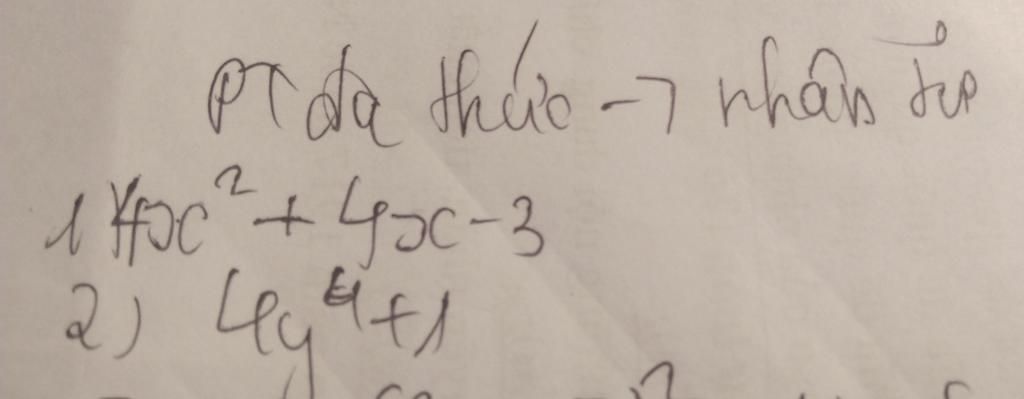 PT đa thức → nhân tử
1) 4x² + 4x - 3
2) 4y⁴ + 1